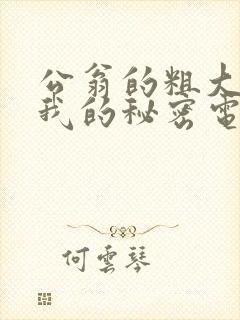 公翁的粗大
我的秘密電
何雲琴